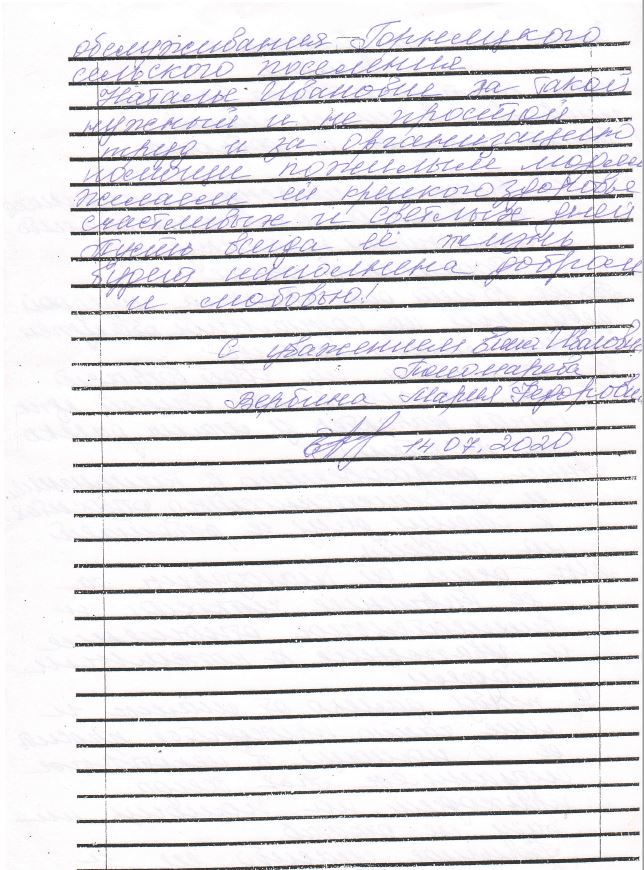 обслуживания Горненского
сельского поселения
Наталье Ивановне за такой
нужный и не простой
труд и за организацию
помощи пожилым людям
желаем ей крепкого здоровья
счастливых и светлых дней
Пусть всегда её жизнь
будет наполнена добром
и любовью!
С уважением
Пономарева
Вербина Мария Федоровн
14 07.2020